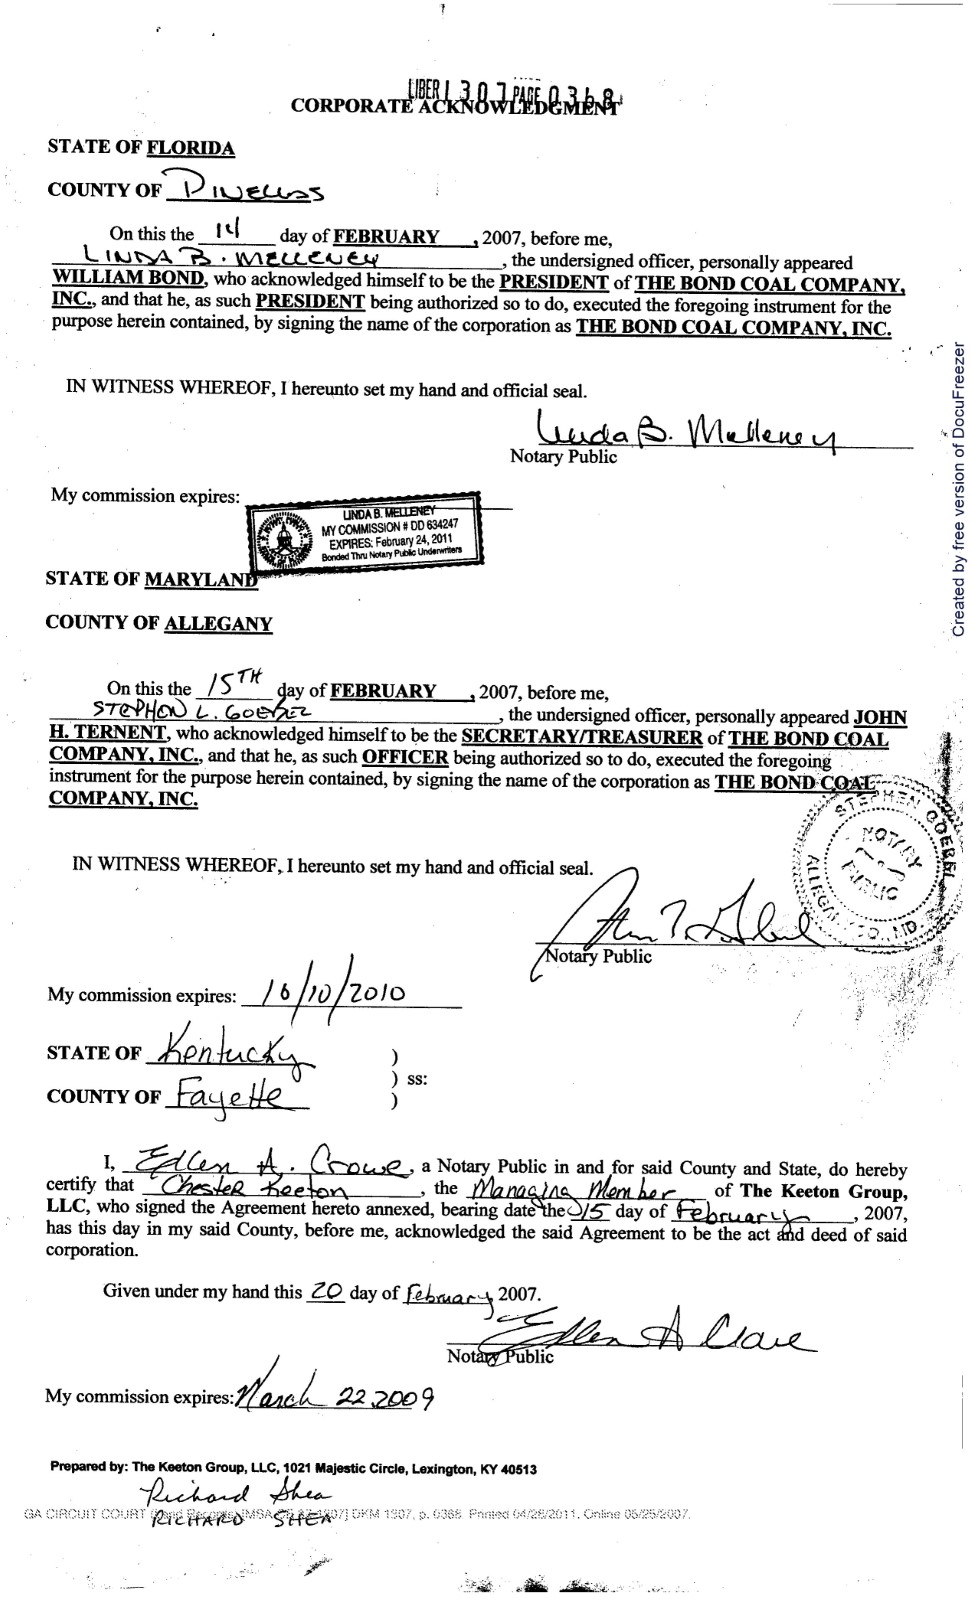 LIBER 1307 PAGE 0368
CORPORATE ACKNOWLEDGMENT
STATE OF FLORIDA
COUNTY OF Pinellas
On this the 14 day of FEBRUARY, 2007, before me,
LINDA B. MELLENEY, the undersigned officer, personally appeared
WILLIAM BOND, who acknowledged himself to be the PRESIDENT of THE BOND COAL COMPANY,
INC., and that he, as such PRESIDENT being authorized so to do, executed the foregoing instrument for the
purpose herein contained, by signing the name of the corporation as THE BOND COAL COMPANY, INC.
IN WITNESS WHEREOF, I hereunto set my hand and official seal.
Linda B. Melleney
Notary Public
My commission expires:
LINDA B. MELLENEY
MY COMMISSION # DD 634247
EXPIRES: February 24, 2011
Bonded Thru Notary Public Underwriters
STATE OF MARYLAND
COUNTY OF ALLEGANY
On this the 15TH day of FEBRUARY, 2007, before me,
STEPHEN L. GOEBEL, the undersigned officer, personally appeared JOHN
H. TERNENT, who acknowledged himself to be the SECRETARY/TREASURER of THE BOND COAL
COMPANY, INC., and that he, as such OFFICER being authorized so to do, executed the foregoing
instrument for the purpose herein contained, by signing the name of the corporation as THE BOND COAL
COMPANY, INC.
STEPHEN GOEBEL
NOTARY
PUBLIC
ALLEGANY CO., MD.
IN WITNESS WHEREOF, I hereunto set my hand and official seal.
Notary Public
My commission expires: 10/10/2010
STATE OF Kentucky )
) ss:
COUNTY OF Fayette )
I, Edlen A. Crowe, a Notary Public in and for said County and State, do hereby
certify that Chester Keeton, the Managing Member of The Keeton Group,
LLC, who signed the Agreement hereto annexed, bearing date the 15 day of February, 2007,
has this day in my said County, before me, acknowledged the said Agreement to be the act and deed of said
corporation.
Given under my hand this 20 day of February 2007.
Edlen A Crowe
Notary Public
My commission expires: March 22, 2009
Prepared by: The Keeton Group, LLC, 1021 Majestic Circle, Lexington, KY 40513
Richard Shea
RICHARD SHEA
GA CIRCUIT COURT DKM 1307, p. 0368. Printed 04/26/2011. Online 05/25/2007.
Created by free version of DocuFreezer